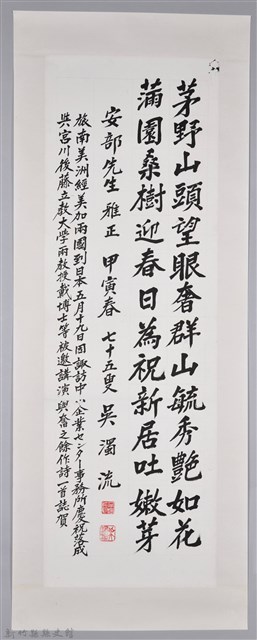 茅野山頭望眼奢群山毓秀艷如花
滿園桑樹迎春日為祝新居吐嫩芽
安部先生 雅正 甲寅春 七十五叟 吳濁流
旅南美洲經美加兩國到日本五月十九日因諏訪中小企業センター事務所慶祝落成
與宮川後藤立教大学兩教授戴博士等被邀講演興奮之餘作詩一首誌賀